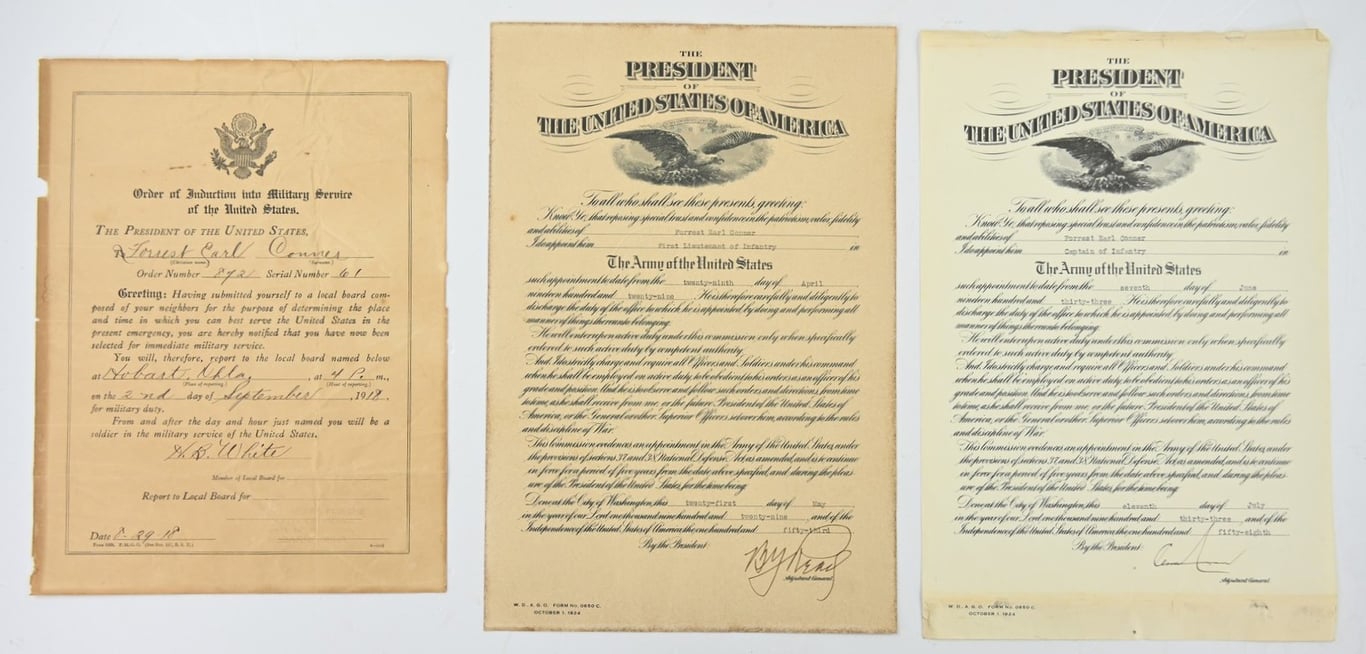 Order of Induction into Military Service
of the United States.
THE PRESIDENT OF THE UNITED STATES,
Forrest Earl Conner
(Christian name) (Surname)
Order Number 872 Serial Number 61
Greeting: Having submitted yourself to a local board com-
posed of your neighbors for the purpose of determining the place
and time in which you can best serve the United States in the
present emergency, you are hereby notified that you have now been
selected for immediate military service.
You will, therefore, report to the local board named below
at Hobart, Okla, at 4 P. m.,
(Place of reporting.) (Hour of reporting.)
on the 2nd day of September, 1918.
for military duty.
From and after the day and hour just named you will be a
soldier in the military service of the United States.
H. B. White
Member of Local Board for
Report to Local Board for
Date 8-29-18
THE
PRESIDENT
OF
THE UNITED STATES OF AMERICA
To all who shall see these presents, greeting:
Know Ye, that reposing special trust and confidence in the patriotism, valor, fidelity
and abilities of Forrest Earl Conner
I do appoint him First Lieutenant of Infantry in
The Army of the United States
such appointment to date from the twenty-ninth day of April
nineteen hundred and twenty-nine. He is therefore carefully and diligently to
discharge the duty of the office to which he is appointed by doing and performing all
manner of things thereunto belonging.
He will enter upon active duty under this commission only when specifically
ordered to such active duty by competent authority.
And I do strictly charge and require all Officers and Soldiers under his command
when he shall be employed on active duty to be obedient to his orders as an officer of his
grade and position. And he is to observe and follow such orders and directions, from time
to time, as he shall receive from me, or the future President of the United States of
America, or the General or other Superior Officers set over him, according to the rules
and discipline of War.
This Commission evidences an appointment in the Army of the United States, under
the provisions of sections 37 and 38 National Defense Act, as amended, and is to continue
in force for a period of five years from the date above specified, and during the pleas-
ure of the President of the United States, for the time being.
Done at the City of Washington, this twenty-first day of May
in the year of our Lord one thousand nine hundred and twenty-nine, and of the
Independence of the United States of America the one hundred and fifty-third
By the President:
Adjutant General.
W. D., A. G. O. FORM NO. 0650 C.
OCTOBER 1, 1924
THE
PRESIDENT
OF
THE UNITED STATES OF AMERICA
To all who shall see these presents, greeting:
Know Ye, that reposing special trust and confidence in the patriotism, valor, fidelity
and abilities of Forrest Earl Conner
I do appoint him Captain of Infantry in
The Army of the United States
such appointment to date from the seventh day of June
nineteen hundred and thirty-three. He is therefore carefully and diligently to
discharge the duty of the office to which he is appointed by doing and performing all
manner of things thereunto belonging.
He will enter upon active duty under this commission only when specifically
ordered to such active duty by competent authority.
And I do strictly charge and require all Officers and Soldiers under his command
when he shall be employed on active duty to be obedient to his orders as an officer of his
grade and position. And he is to observe and follow such orders and directions, from time
to time, as he shall receive from me, or the future President of the United States of
America, or the General or other Superior Officers set over him, according to the rules
and discipline of War.
This Commission evidences an appointment in the Army of the United States, under
the provisions of sections 37 and 38 National Defense Act, as amended, and is to continue
in force for a period of five years from the date above specified, and during the pleas-
ure of the President of the United States, for the time being.
Done at the City of Washington, this eleventh day of July
in the year of our Lord one thousand nine hundred and thirty-three, and of the
Independence of the United States of America the one hundred and fifty-eighth
By the President:
Adjutant General.
W. D., A. G. O. FORM NO. 0650 C.
OCTOBER 1, 1924